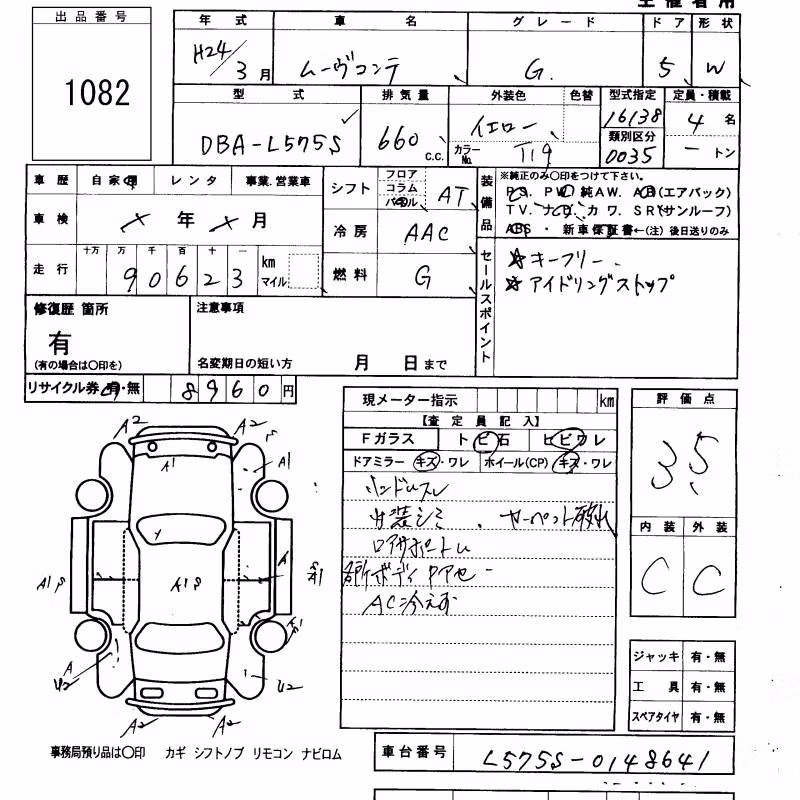 出品番号
1082
年式 車名 グレード ドア 形状
H24/3月 ムーヴコンテ G. 5 W
型式 排気量 外装色 色替 型式指定 定員・積載
DBA-L575S 660 c.c. イエロー 16138 4名
カラーNo. T19 類別区分 0035 ートン
車歴 自家用 レンタ 事業.営業車
車検 メ年メ月
走行 十万 万 千 百 十 一
90623 km マイル
シフト フロア コラム パネル AT
冷房 AAC
燃料 G
装備品
※純正のみ〇印をつけて下さい。
PS. PW 純AW. AB(エアバック)
TV. ナビ. カワ. SR(サンルーフ)
ABS ・ 新車保証書←(注)後日送りのみ
セールスポイント
☆キーフリー
☆アイドリングストップ
修復歴 箇所
有
(有の場合は〇印を)
注意事項
名変期日の短い方 月 日まで
リサイクル券 有・無 8960円
現メーター指示 km
【査定員記入】
Fガラス トビ石 ヒビワレ
ドアミラー キズ・ワレ ホイール(CP) キズ・ワレ
ハンドルスレ
内装シミ カーペット破れ
ロアサポートU
各所ボディ
AC冷えず
評価点
3.5
内装 外装
C C
ジャッキ 有・無
工具 有・無
スペアタイヤ 有・無
A2 A2
A1 A1
A
A1S A1S A1
A
U2 U2
A2 A2
事務局預り品は〇印 カギ シフトノブ リモコン ナビロム
車台番号 L575S-0148641